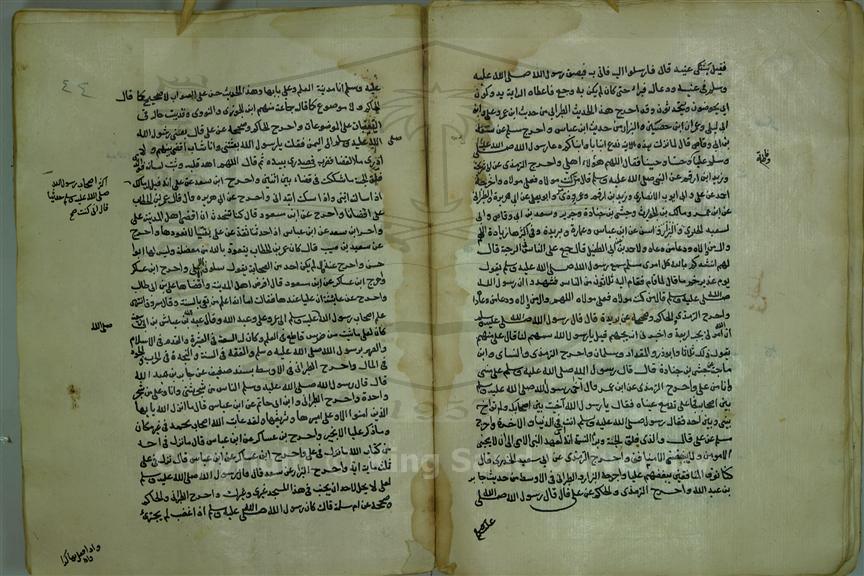 فقيل يشتكي عينيه قال فارسلوا اليه فاتي به فبصق رسول الله صلى الله عليه
وسلم في عينيه ودعا له فبرا حتى كان لم يكن به وجع فاعطاه الراية يدوكون
اي يخوضون ويتحدثون وقد اخرج هذا الحديث الطبراني من حديث ابن عمر وعلي وابن
ابي ليلى وعمران ابن حصين والبزار من حديث ابن عباس واخرج مسلم عن سعد
بن ابي وقاص قال لما نزلت هذه الاية ندع ابنانا وابناكم دعا رسول الله صلى الله عليه
وسلم عليا وحسنا وحسينا فقال اللهم هؤلاء اهلي واخرج الترمذي عن
وزيد ابن ارقم عن النبي صلى الله عليه وسلم قال من كنت مولاه فعلي مولاه واخرجه
احمد عن علي وابي ايوب الانصاري وزيد بن ارقم وعمر وذي مر وابو يعلى عن ابي هريرة والطبراني
عن ابن عمر ومالك بن الحويرث وحبشي بن جنادة وجرير وسعد بن ابي وقاص وابي
سعيد الخدري والبزار عن ابن عباس وعمارة وبريدة وفي اكثرها زيادة اللهم
وال من والاه وعاد من عاداه ولاحمد عن ابي الطفيل قال جمع علي الناس في الرحبة قال
لهم انشد كم بالله كل امرئ مسلم سمع رسول الله صلى الله عليه وسلم يقول
يوم غدير خم ما قال لما قام فقام اليه ثلاثون من الناس فشهدوا ان رسول الله
صلى الله عليه وسلم قال من كنت مولاه فعلي مولاه اللهم وال من والاه وعاد من عاداه
واخرج الترمذي والحاكم وصححه عن بريدة قال قال رسول الله صلى الله عليه وسلم
ان الله امرني بحب اربعة واخبرني انه يحبهم قيل يا رسول الله سمهم لنا قال علي منهم
يقول ذلك ثلاثا وابو ذر والمقداد وسلمان واخرج الترمذي والنسائي وابن
ماجة عن حبشي بن جنادة قال قال رسول الله صلى الله عليه وسلم علي مني
وانا من علي واخرج الترمذي عن ابن عمر قال آخى رسول الله صلى الله عليه وسلم
بين اصحابه فجا علي تدمع عيناه فقال يا رسول الله آخيت بين اصحابك ولم تواخ
بيني وبين احد فقال رسول الله صلى الله عليه وسلم انت اخي في الدنيا والاخرة واخرج
مسلم عن علي قال والذي فلق الحبة وبرا النسمة انه لعهد النبي الامي الي ان لا يحبني
الا مومن ولا يبغضني الا منافق واخرج الترمذي عن ابي سعيد الخدري قال
كنا نعرف المنافقين ببغضهم عليا واخرجه البزار والطبراني في الاوسط من حديث جابر
بن عبد الله واخرج الترمذي والحاكم عن علي قال قال رسول الله صلى الله
عليه وسلم
عليه وسلم انا مدينة العلم وعلي بابها وهذا الحديث حسن على الصواب لا صحيح كما قال
الحاكم ولا موضوع كما قال جماعة منهم ابن الجوزي والنووي وقد بينت حاله في
التعقبات على الموضوعات واخرج الحاكم وصححه عن علي قال بعثني رسول الله
صلى الله عليه وسلم الى اليمن فقلت يا رسول الله بعثتني وانا شاب اقضي بينهم ولا
ادري ما القضا فضرب في صدري بيده ثم قال اللهم اهد قلبه وثبت لسانه فوالذي
فلق الحبة ما شككت في قضاء بين اثنين واخرج ابن سعد عن علي انه قيل له مالك
اكثر اصحاب رسول الله
صلى الله عليه وسلم حديثا
قال اني كنت صح
اذا سالته انباني واذا سكت ابتداني واخرج عن ابي هريرة قال قال عمر بن الخطاب
علي اقضانا واخرج عن ابن مسعود قال كنا نتحدث ان اقضى اهل المدينة علي
واخرج ابن سعد عن ابن عباس اذا حدثنا ثقة عن علي بفتيا لا نعدوها واخرج
عن سعيد بن المسيب قال كان عمر بن الخطاب يتعوذ بالله من معضلة وليس لها ابو
حسن واخرج عنه قال لم يكن احد من الصحابة يقول سلوني الا علي واخرج ابن عسكر
واخرج ابن عسكر عن ابن مسعود قال افرض اهل المدينة واقضاها علي بن ابي طالب
واخرج عن عايشة ان عليا ذكر عندها فقالت اما انه اعلم من بقي بالسنة وقال مسروق انتهى
علم اصحاب رسول الله صلى الله عليه وسلم الى عمر وعلي وعبد الله وقال عبد الله بن عياش بن ابي ربيعة
كان لعلي ما شئت من ضرس قاطع في العلم وكان له البسطة في العشيرة والقدم في الاسلام
والصهر برسول الله صلى الله عليه وسلم والفقه في السنة والنجدة في الحرب والجود
في المال واخرج الطبراني في الاوسط بسند ضعيف عن جابر بن عبد الله
قال قال رسول الله صلى الله عليه وسلم الناس من شجر شتى وانا وعلي من شجرة
واحدة واخرج الطبراني وابن ابي حاتم عن ابن عباس قال ما انزل الله يا ايها
الذين امنوا الا وعلي اميرها وشريفها ولقد عاتب الله اصحاب محمد في غير مكان
وما ذكر عليا الا بخير واخرج بن عساكر عن ابن عباس قال ما نزل في احد
من كتاب الله ما نزل في علي واخرج ابن عسكر عن ابن عباس قال نزلت في علي
ثلثماية اية واخرج البزار عن سعد قال قال رسول الله صلى الله عليه وسلم
لعلي لا يحل لاحد ان يجنب في هذا المسجد غيري وغيرك واخرج الطبراني والحاكم
وصححه عن ام سلمة قالت كان رسول الله صلى الله عليه وسلم اذا غضب لم يجتري